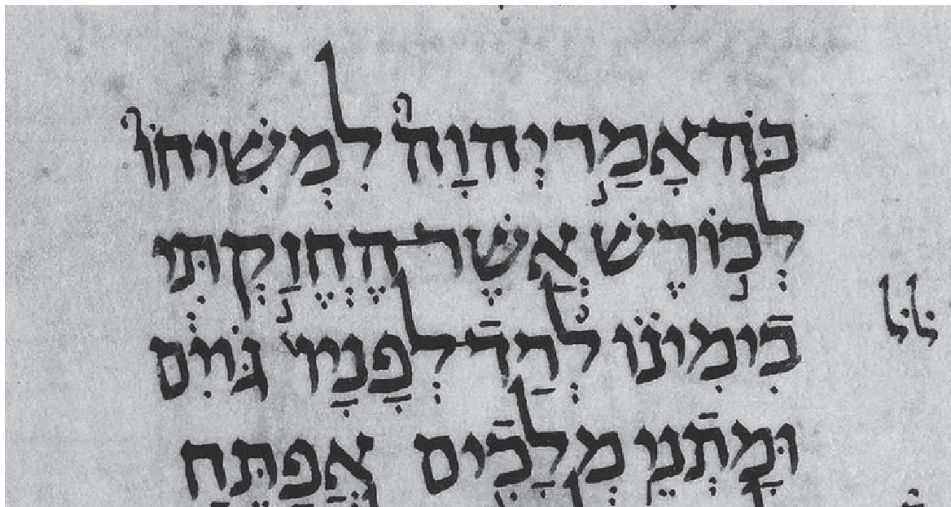 כֹּה־אָמַ֣ר יְהוָה֮ לִמְשִׁיחוֹ֮
לְכ֣וֹרֶשׁ אֲשֶׁר־הֶחֱזַ֣קְתִּי
בִֿימִינ֗וֹ לְרַדֿ־לְפָנָיו֙ גּוֹיִ֔ם
ל̇ ל̇
וּמָתְֿנֵ֥י מְלָכִֿ֖ים אֲפַתֵּ֑חַ